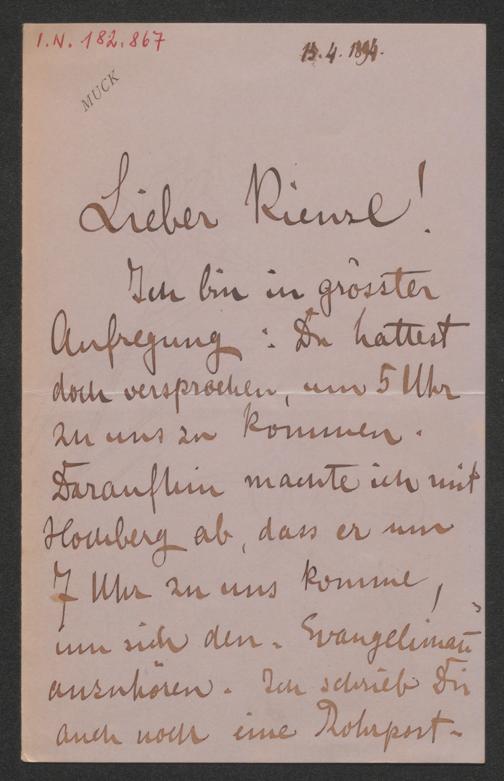 I.N. 182.867
15.4.1894.
MUCK
Lieber Kienzl!
Ich bin in grösster
Aufregung: Du hattest
doch versprochen, um 5 Uhr
zu uns zu kommen.
Daraufhin machte ich mit
Hochberg ab, dass er um
7 Uhr zu uns komme,
um sich den „Evangelimann“
anzuhören. Ich schrieb Dir
auch noch eine Rohrpost-